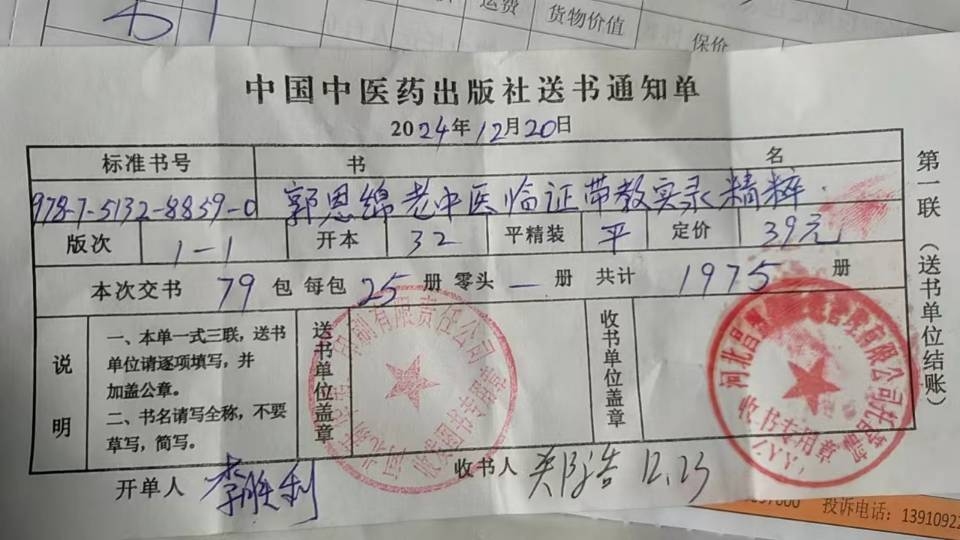 运费
货物价值
保价
中国中医药出版社送书通知单
2024年12月20日
标准书号 书 名
978-7-5132-8859-0 郭恩绵老中医临证带教实录精粹
版次 1-1 开本 32 平精装 平 定价 39元
本次交书 79 包 每包 25 册 零头 — 册 共计 1975 册
说明
一、本单一式三联,送书
单位请逐项填写,并
加盖公章。
二、书名请写全称,不要
草写,简写。
送书单位盖章
印刷有限责任公司
收书单位盖章
河北昌
管理有限公司
收书专用章
ZYY
第一联(送书单位结账)
开单人 李胜利
收书人 12.23
投诉电话:13910922